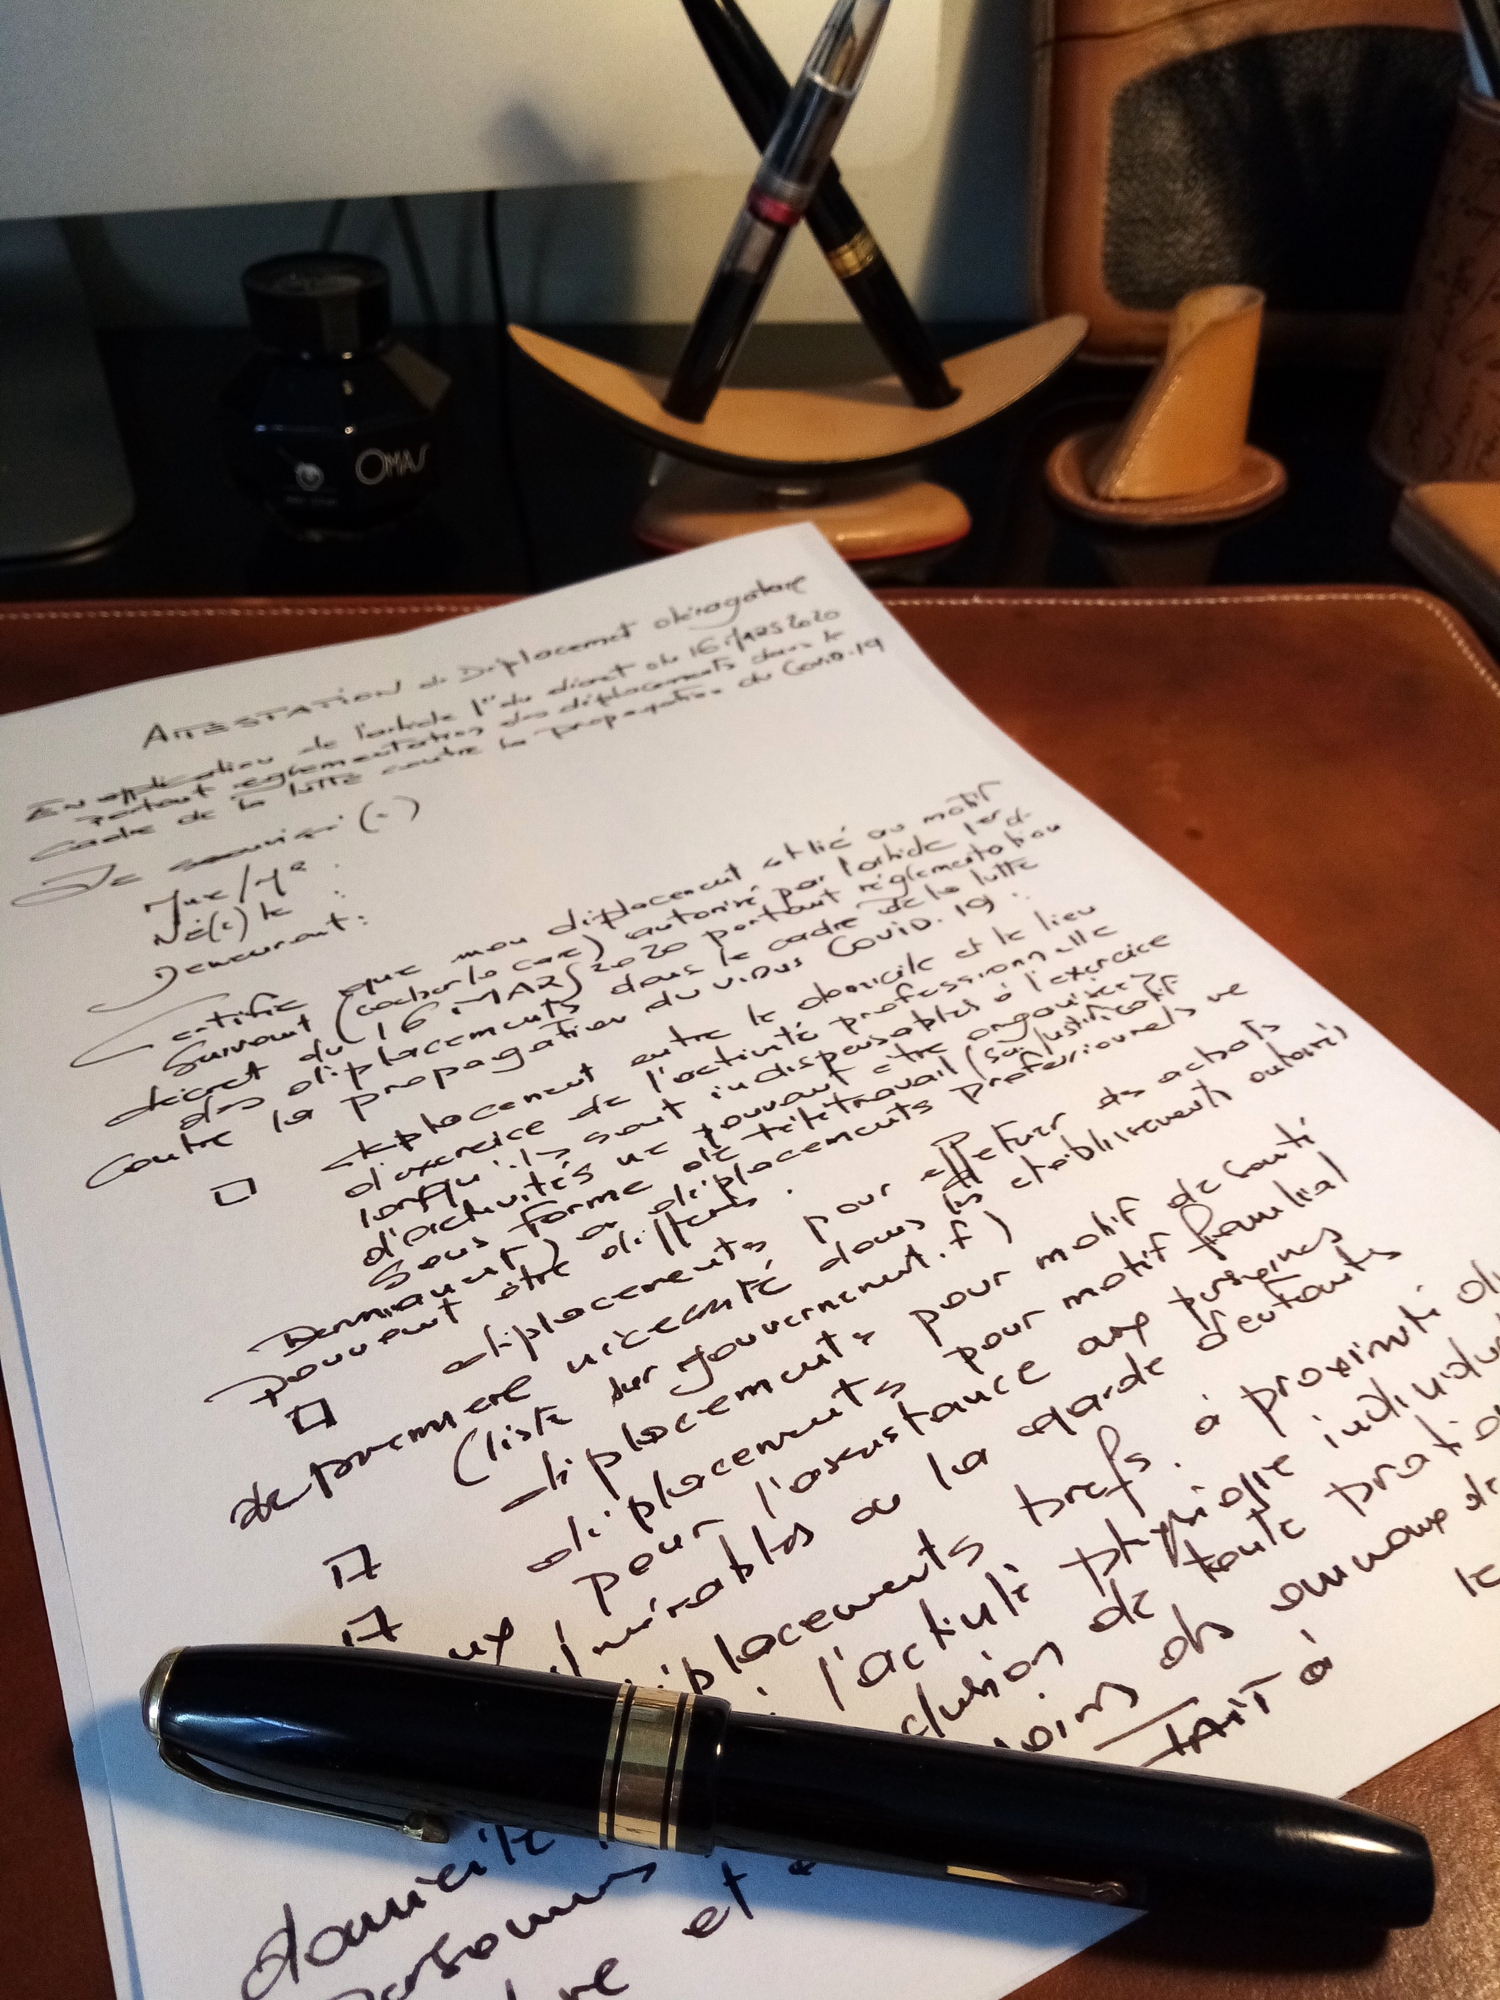 OMAS
ATTESTATION de Déplacement dérogatoire
En application de l'article 1er du décret du 16 MARS 2020
portant réglementation des déplacements dans le
cadre de la lutte contre la propagation du Covid.19
Je soussigné(e)
Mme/Mr :
Né(e) le :
Demeurant :
Certifie que mon déplacement est lié au motif
suivant (cocher la case) autorisé par l'article 1er d
décret du 16 MARS 2020 portant réglementation
des déplacements dans le cadre de la lutte
contre la propagation du virus Covid.19 :
□ déplacement entre le domicile et le lieu
d'exercice de l'activité professionnelle
lorsqu'ils sont indispensables à l'exercice
d'activités ne pouvant être organisées
sous forme de télétravail (sur justificatif
permanent) ou déplacements professionnels ne
pouvant être différés.
□ déplacements pour effectuer des achats
de première nécessité dans les établissements autorisés
(liste sur gouvernement.f)
□ déplacements pour motif de santé
□ déplacements pour motif familial
pour l'assistance aux personnes
la garde d'enfants
placements brefs, à proximité d
l'activité physique individuel
clusion de toute pratiq
soins des animaux de
le
FAIT à
domicile
et